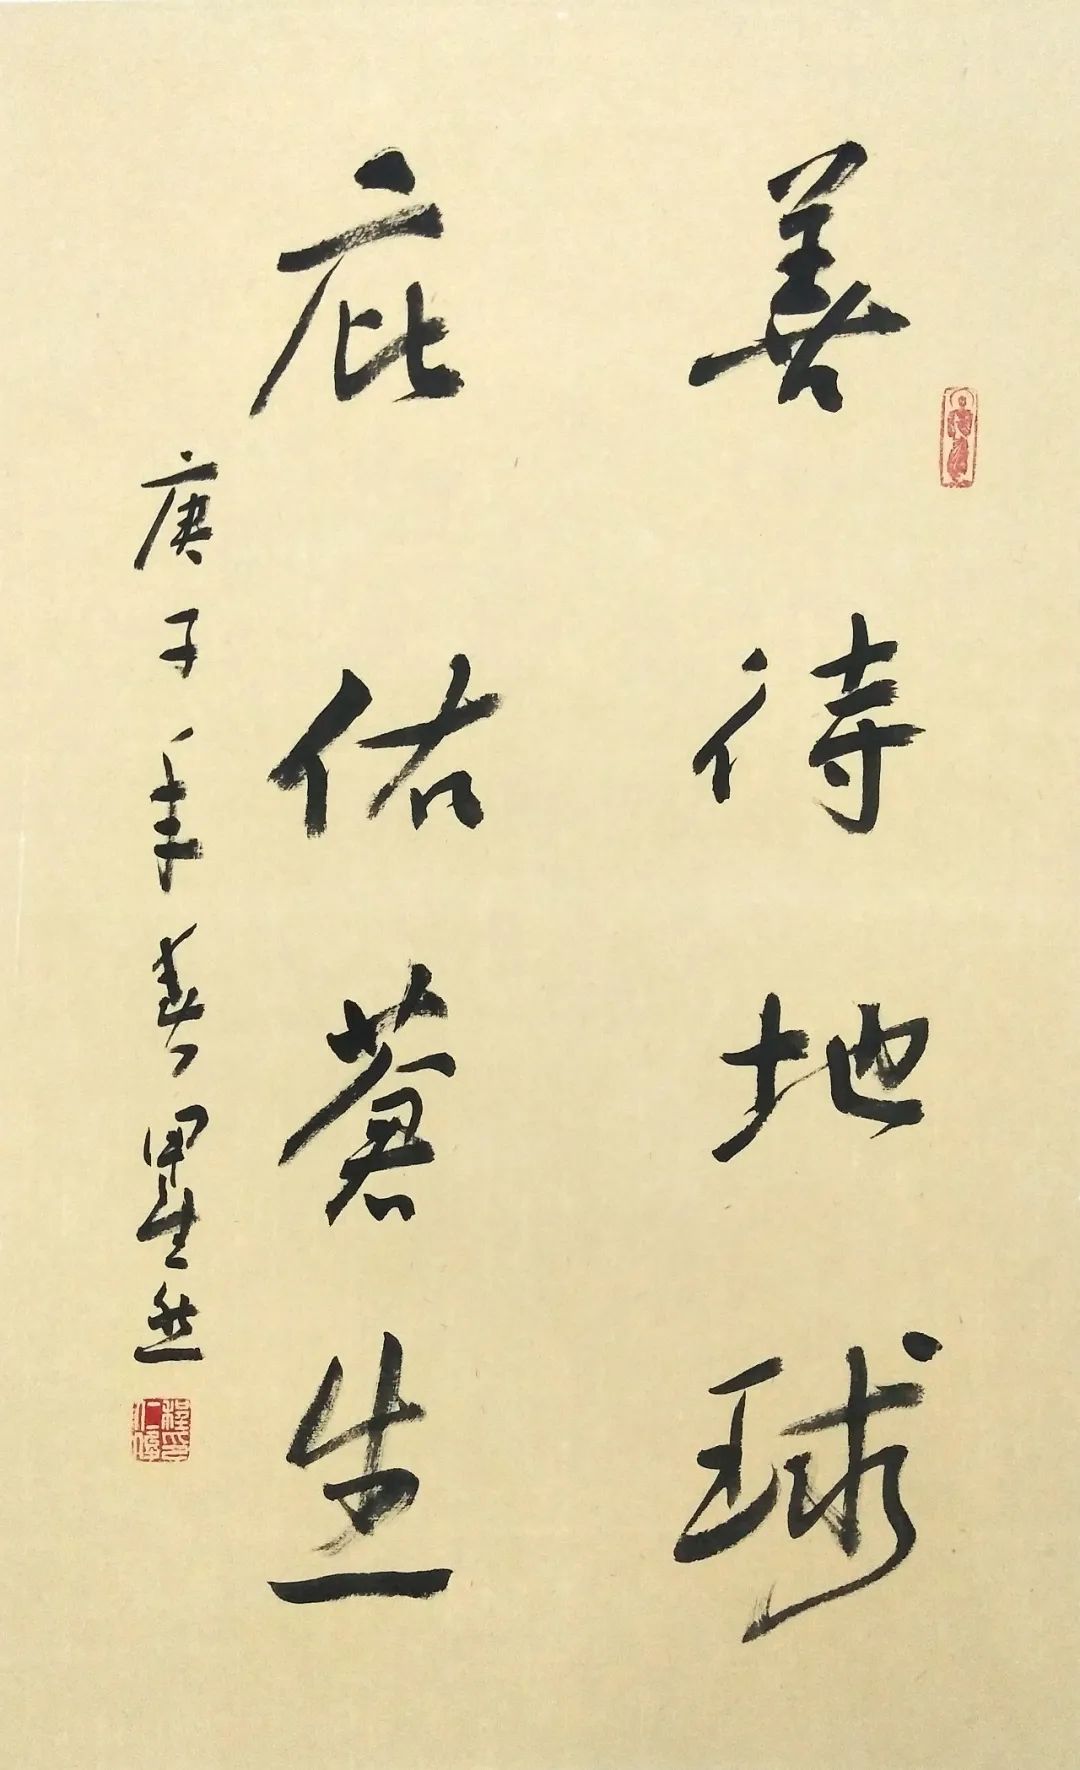 善待地球
庇佑蒼生
庚子年春